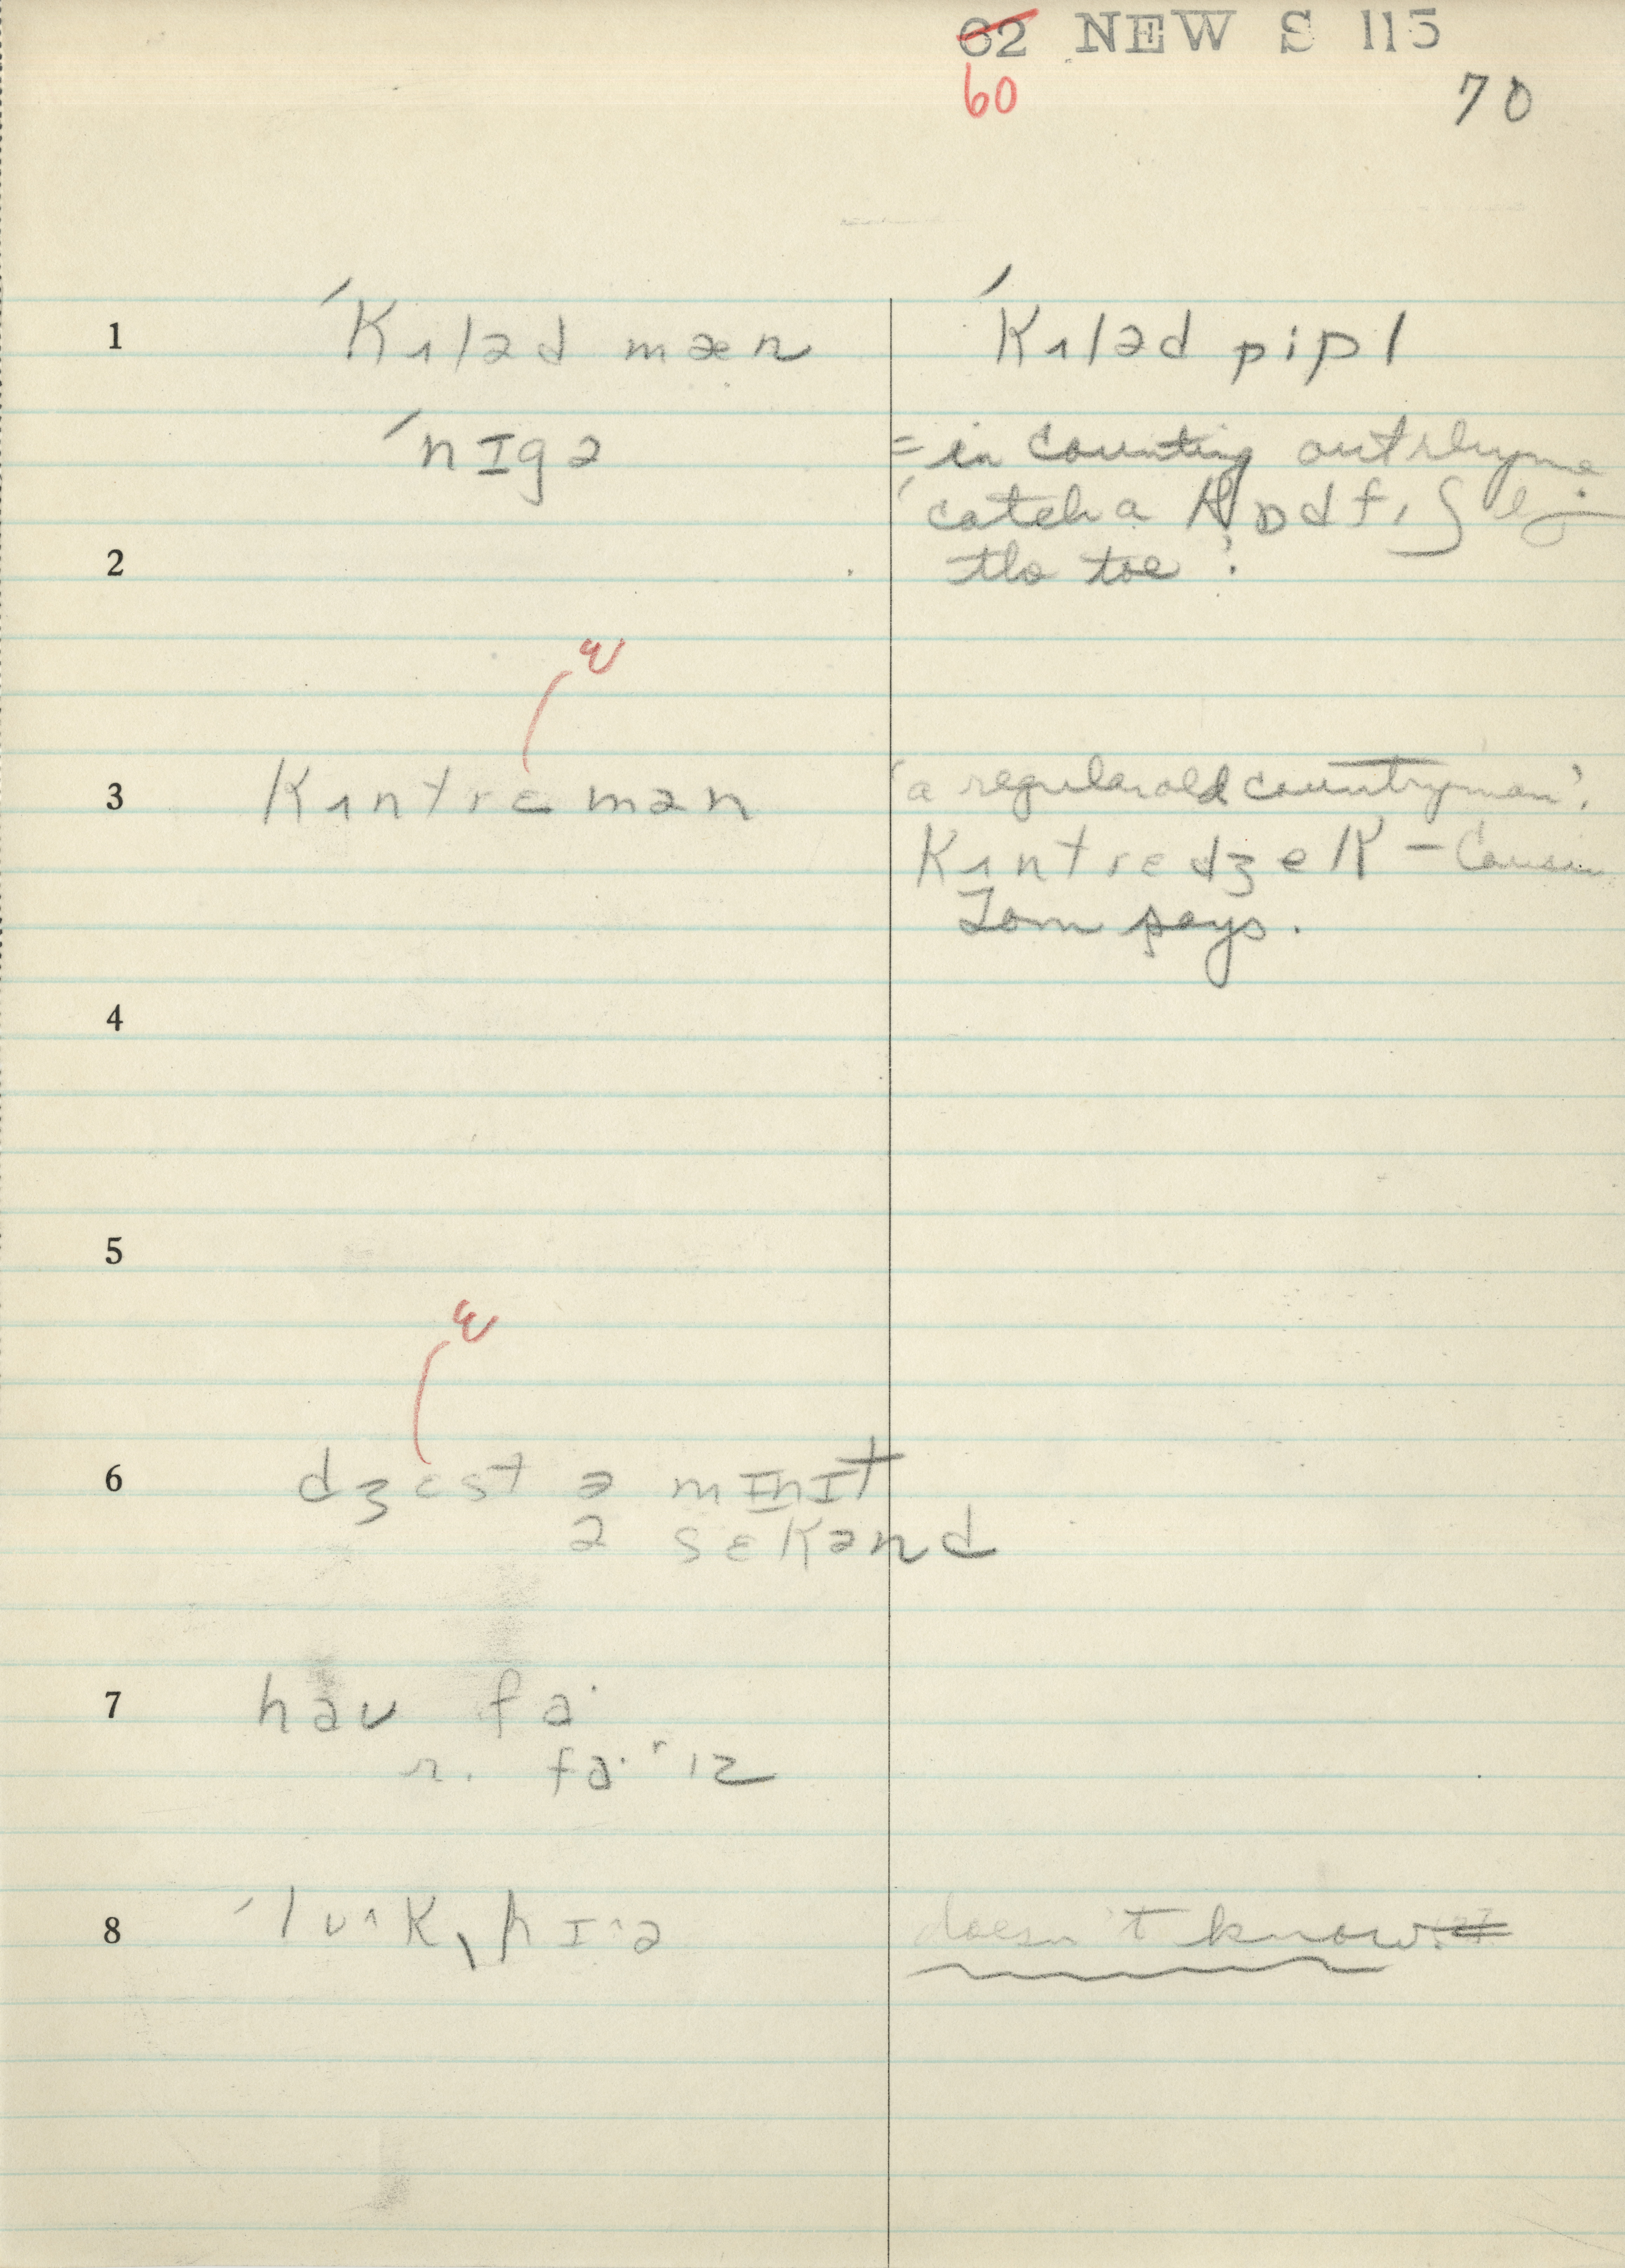 62 NEW S 115
60
70
1 ´kʌləd mæn ´kʌləd pipl
´nɪgə = in counting out rhyme
'catch a kɒdfɪʃ by
2 the toe'.
ɛ
3 kʌntrɛmən 'a regular old countryman'.
kʌntrɛdʒek – Cousin
Tom says.
4
5
ɛ
6 dʒɛst ə mɪnɪt
ə sɛkənd
7 haʊ fa·
n. fa·r ɪz
8
doesn't know